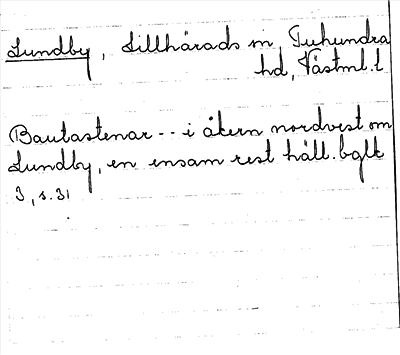 Lundby, Lillhärads sn, Tuhundra
hd, Västml. l
Bautastenar -- i åkern nordvest om
Lundby, en ensam rest häll. bglt
3, s. 31